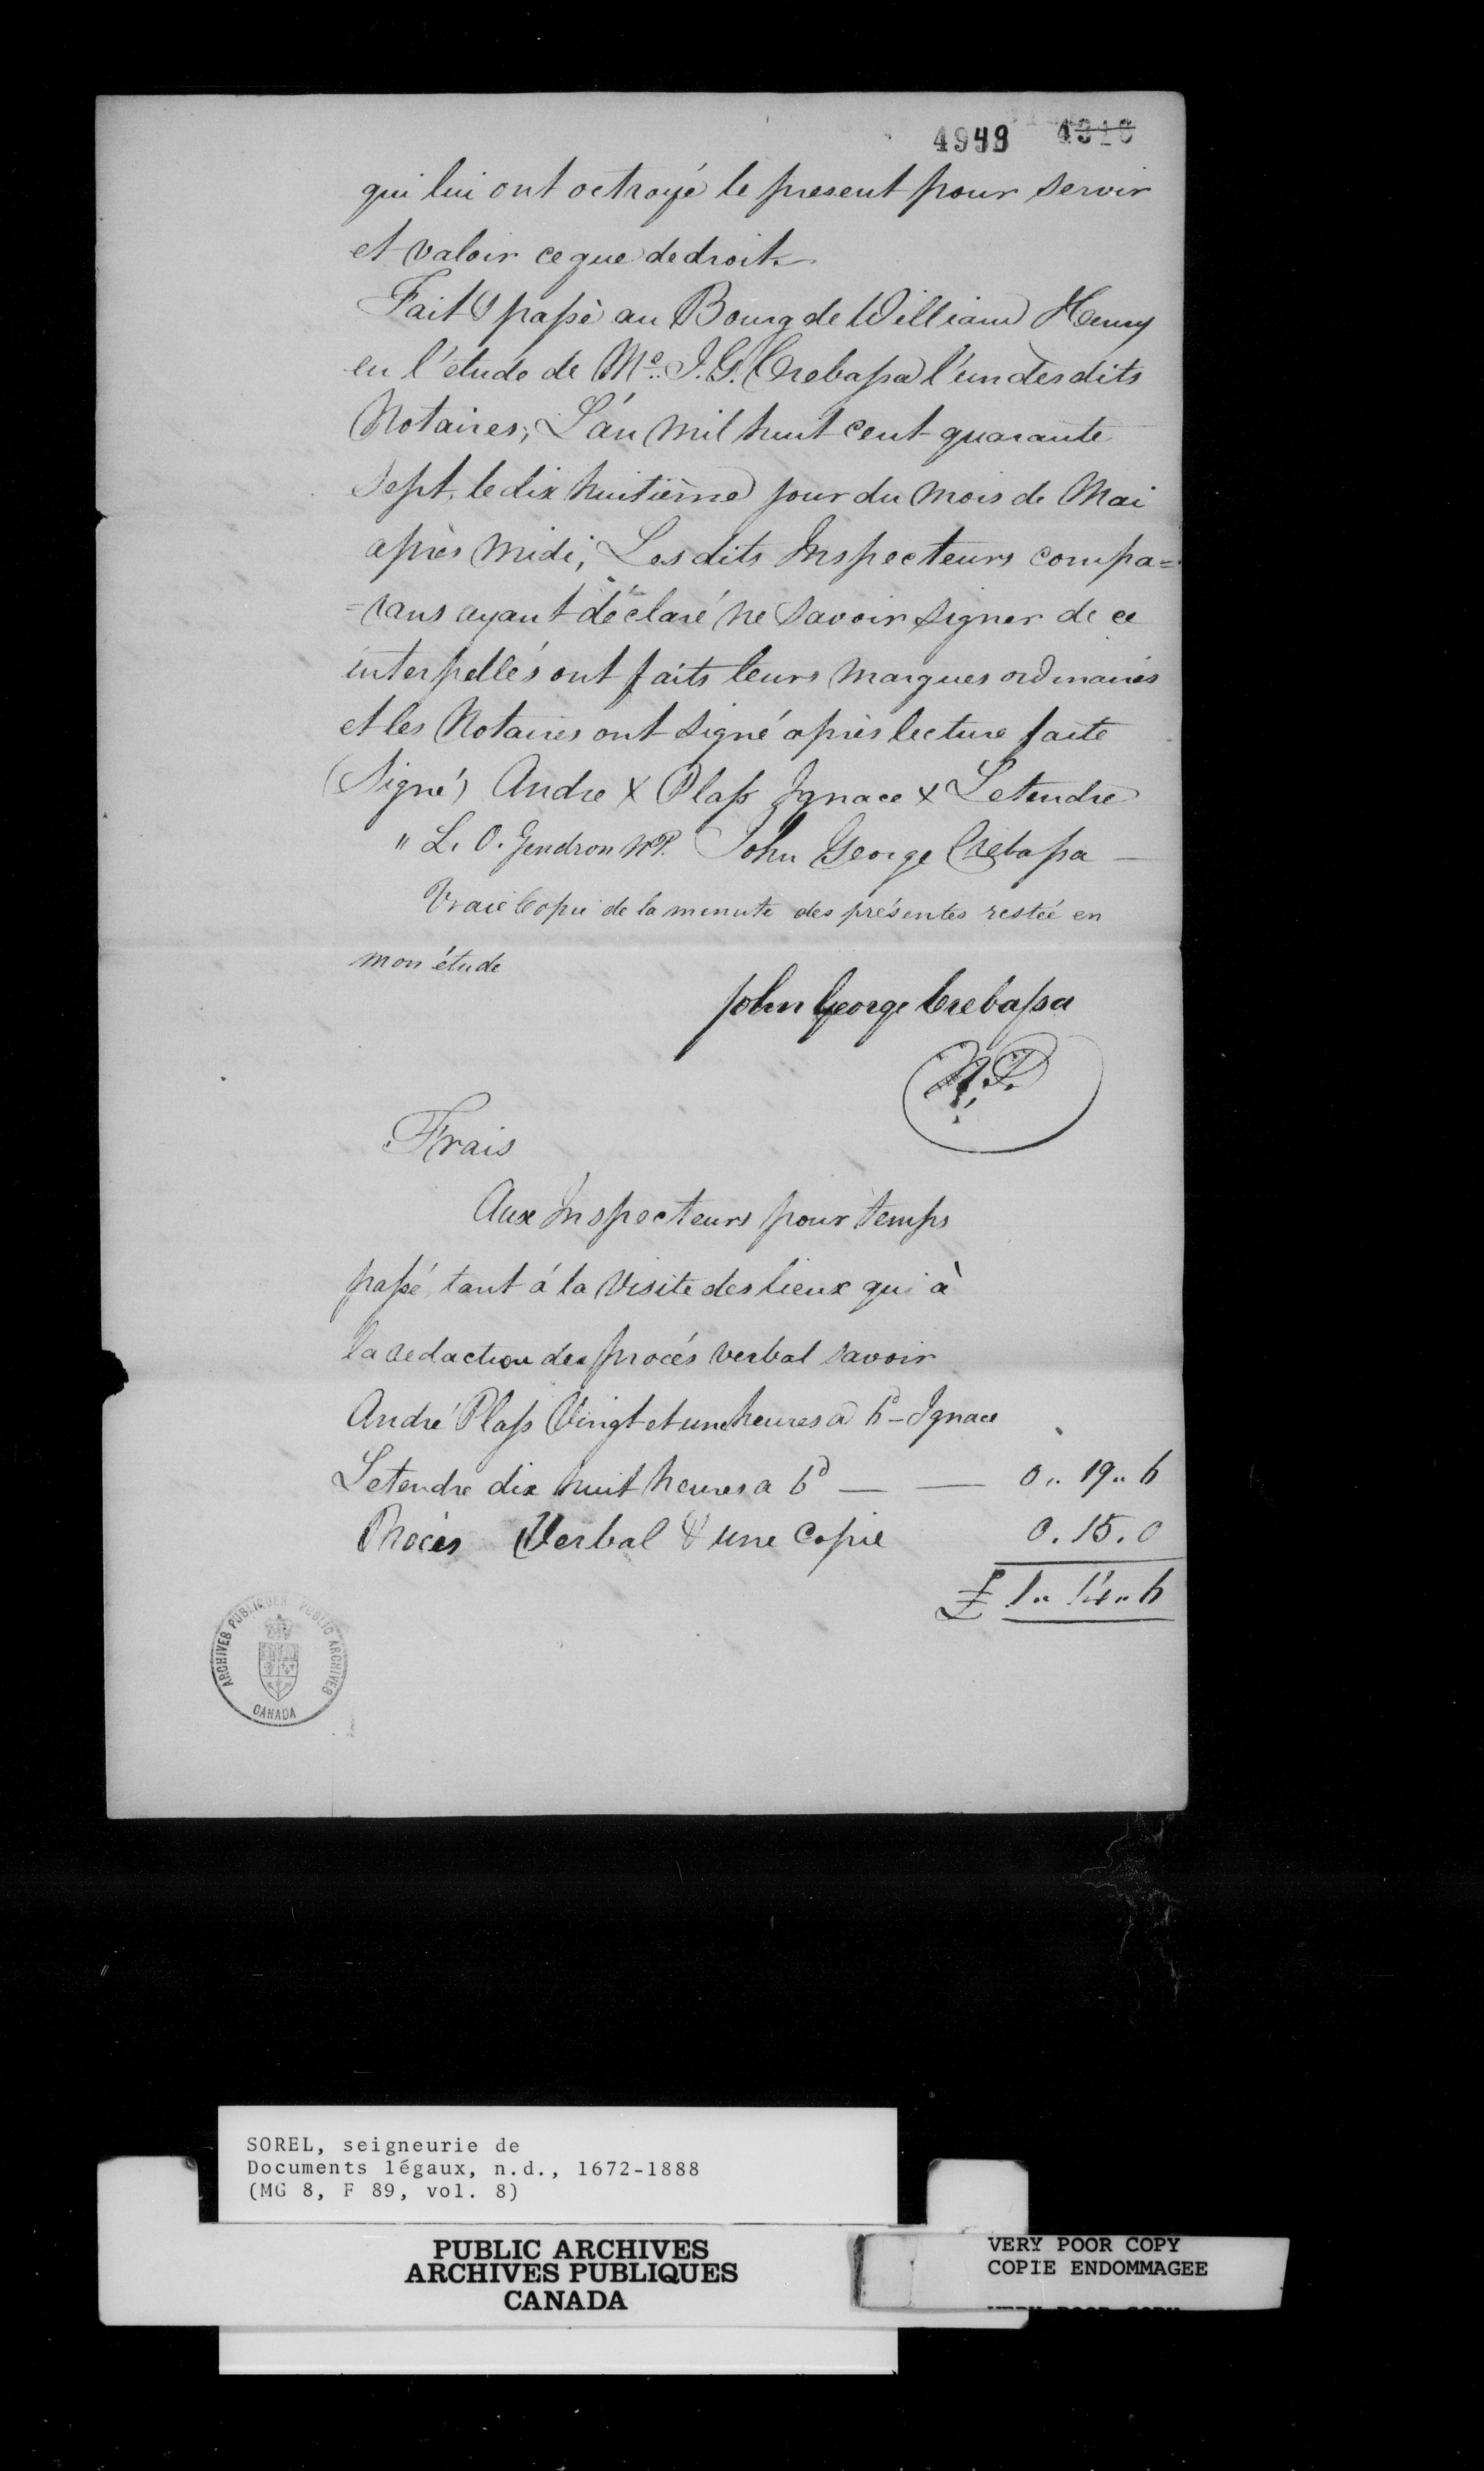 4949 4318
qui lui ont octroyé le present pour servir
et valoir ce que de droit.
Fait & passé au Bourg de William Henry
en l'étude de Me. J. G. Crebassa l'un des dits
Notaires; L'an mil huit cent quarante
sept, le dix huitième jour du mois de Mai
après midi; Les dits Inspecteurs compa=
=rans ayant déclaré ne savoir signer de ce
interpellés ont faits leurs marques ordinaires
et les Notaires ont signé après lecture faite
(Signé) Andre X Plass Ignace X Letendre
" L. O. Gendron N.P. John George Crebassa —
Vraie Copie de la minute des présentes restée en
mon étude
John George Crebassa
N.P.
Frais
Aux Inspecteurs pour temps
passé, tant á la visite des lieux qui à
la redaction des procés verbal savoir
André Plass Vingt et une heures a 6d - Ignace
Letendre dix huit heures a 6d — — 0.. 19.. 6
Procès Verbal & une Copie 0. 15. 0
£ 1.. 14.. 6
ARCHIVES PUBLIQUES PUBLIC ARCHIVES
CANADA
SOREL, seigneurie de
Documents légaux, n.d., 1672-1888
(MG 8, F 89, vol. 8)
PUBLIC ARCHIVES
ARCHIVES PUBLIQUES
CANADA
VERY POOR COPY
COPIE ENDOMMAGEE
VERY POOR COPY